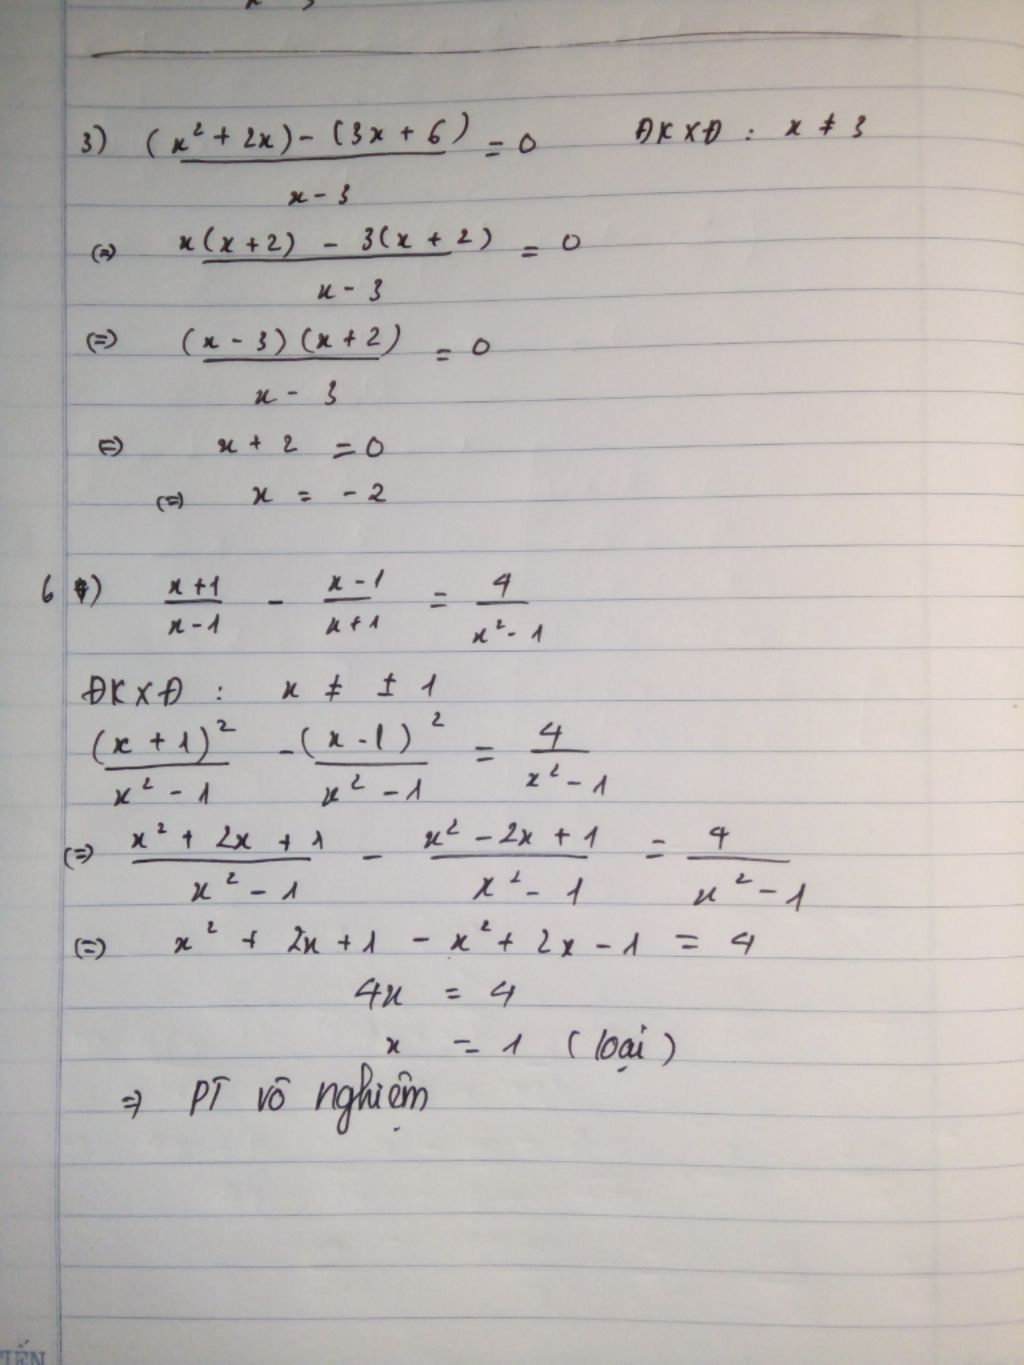 3) (x² + 2x) - (3x + 6) = 0 ĐKXĐ : x ≠ 3
x - 3
(=) x(x+2) - 3(x+2) = 0
x - 3
(=) (x - 3)(x+2) = 0
x - 3
(=) x + 2 = 0
(=) x = -2
6) x+1 - x-1 = 4
x-1 x+1 x²-1
ĐKXĐ : x ≠ ±1
(x+1)² - (x-1)² = 4
x²-1 x²-1 x²-1
(=) x² + 2x + 1 - x² - 2x + 1 = 4
x² - 1 x² - 1 x² - 1
(=) x² + 2x + 1 - x² + 2x - 1 = 4
4x = 4
x = 1 (loại)
=> PT vô nghiệm